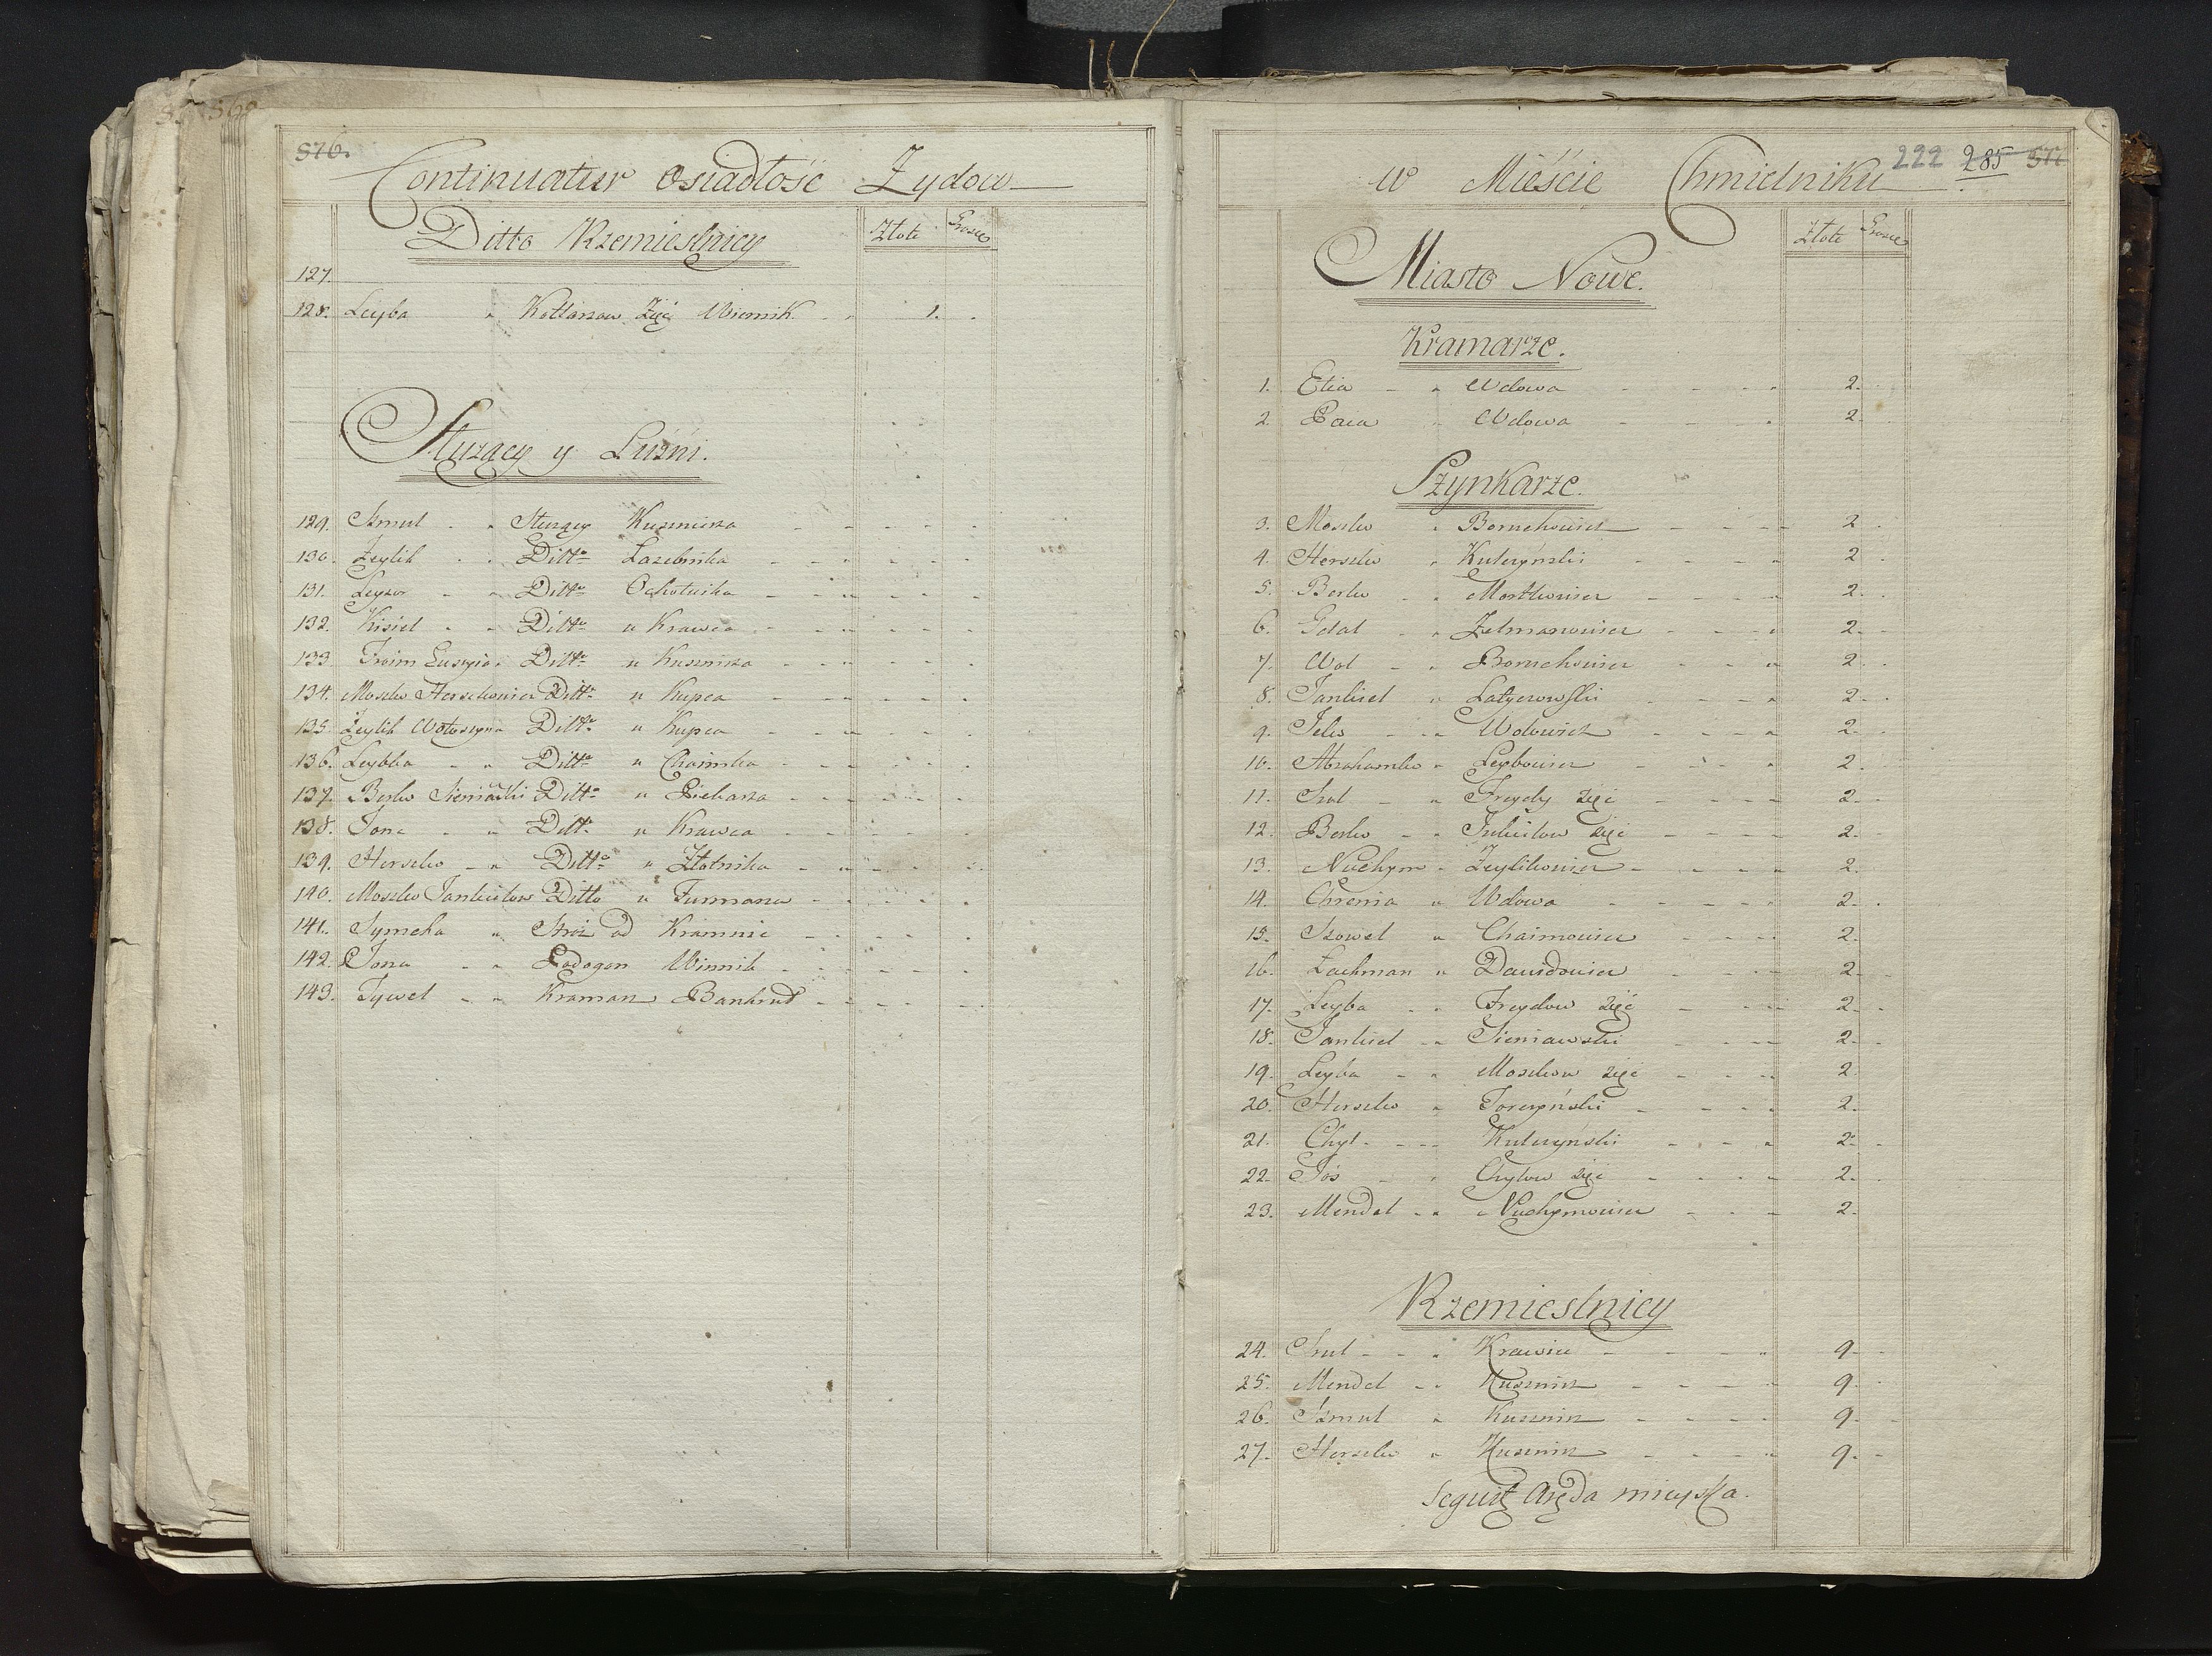 576.
Continuatur Osiadłość Zydow
Ditto Rzemieslnicy
Złote Grosze
127.
128. Leyba Kotlarzow Zięć Winnik 1.
Służący y Luźni.
129. Szmul Służący Kusznierza
130. Zeylik Ditto Łaziebnika
131. Leyzor Ditto
132. Kisiel Ditto u Krawca
133. Froim Ditto u Kusznierza
134. Moszko Herszkowicz Ditto u Kupca
135. Zeylik Ditto u Kupca
136. Leybka Ditto u Chaimka
137. Berko Sieniawski Ditto u Piekarza
138. Jona Ditto u Krawca
139. Herszko Ditto u Złotnika
140. Moszko Jankielow Ditto u Furmana
141. Symcha Stróz od Kramnic
142. Jona Podogon Winnik
143. Tywel Kramarz Bankrut
w Mieście Chmielniku 222 285 577
Złote Grosze
Miasto Nowe.
Kramarze.
1. Etia Wdowa 2.
2. Wdowa 2.
Szynkarze.
3. Moszko Boruchowicz 2
4. Herszko Kulczyński 2
5. Berko 2.
6. Gdal Zelmanowicz 2.
7. Wol Boruchowicz 2.
8. Jankiel Latyczowski 2.
9. Wolowicz 2.
10. Abrahamko Leybowicz 2.
11. Srul Freydy zięć 2.
12. Berko zięć 2.
13. Nuchym Zeylikowicz 2.
14. Wdowa 2.
15. Chaimowicz 2.
16. Zachman Dawidowicz 2.
17. Leyba Freydow zięć 2.
18. Jankiel Sieniawski 2.
19. Leyba Moszkow zięć 2.
20. Herszko 2.
21. Chyl Kulczyński 2.
22. Jos Chylow zięć 2.
23. Mendel Nuchymowicz 2.
Rzemieslnicy
24. Srul Krawiec 9.
25. Mendel Kusznierz 9.
26. Szmul Kusznierz 9.
27. Herszko Kusznierz 9.
Seguit Aręda mieyska.